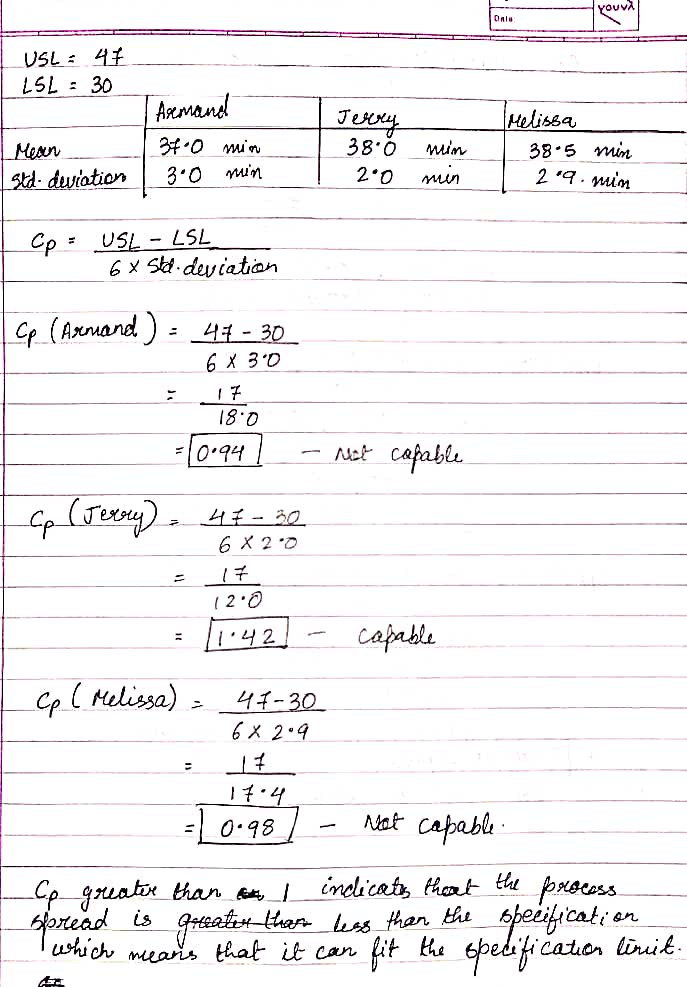 Youva
Date
USL = 47
LSL = 30
Armand Jerry Melissa
Mean 37.0 min 38.0 min 38.5 min
Std. deviation 3.0 min 2.0 min 2.9. min
Cp = USL - LSL
6 x Std. deviation
Cp (Armand) = 47 - 30
6 x 3.0
= 17
18.0
= 0.94 - Not capable
Cp (Jerry) = 47 - 30
6 x 2.0
= 17
12.0
= 1.42 - Capable
Cp (Melissa) = 47-30
6 x 2.9
= 17
17.4
= 0.98 - Not capable.
Cp greater than 1 indicates that the process
spread is greater than less than the specification
which means that it can fit the specification limit.